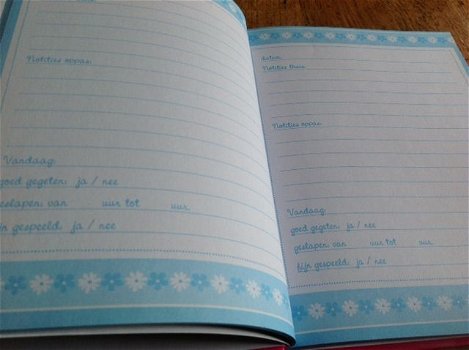 Notities oppas:
Vandaag:
goed gegeten: ja / nee
geslapen: van uur tot uur
fijn gespeeld: ja / nee
datum:
Notities thuis:
Notities oppas:
Vandaag:
goed gegeten: ja / nee
geslapen: van uur tot uur
fijn gespeeld: ja / nee